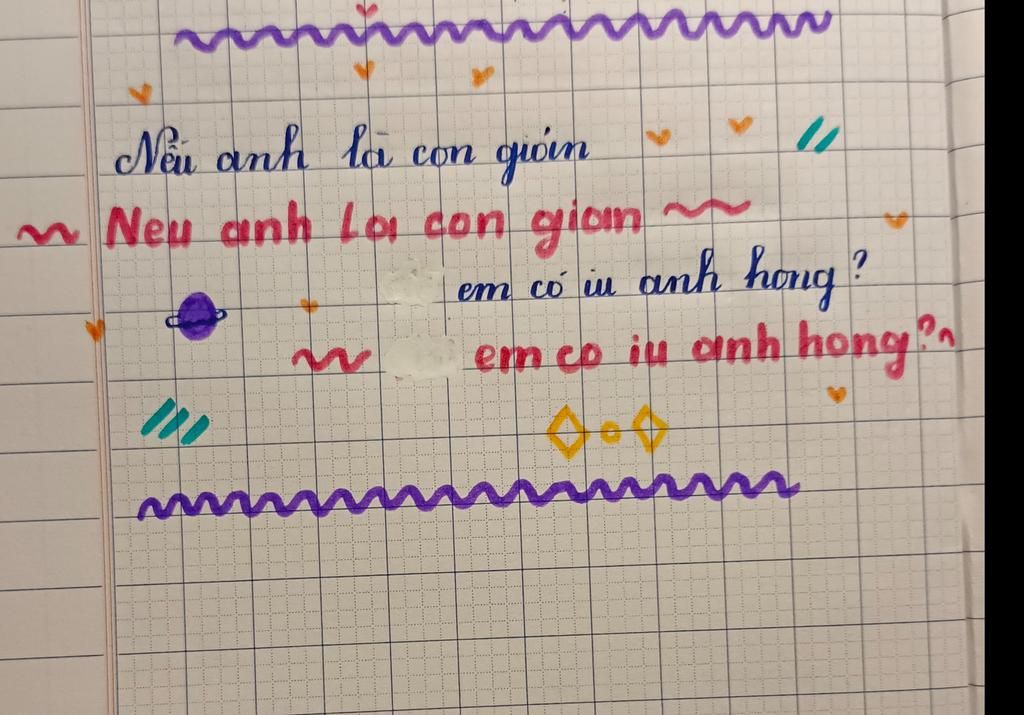 Nếu anh là con gián
Neu anh La con gian
em có iu anh hong?
em co iu anh hong?